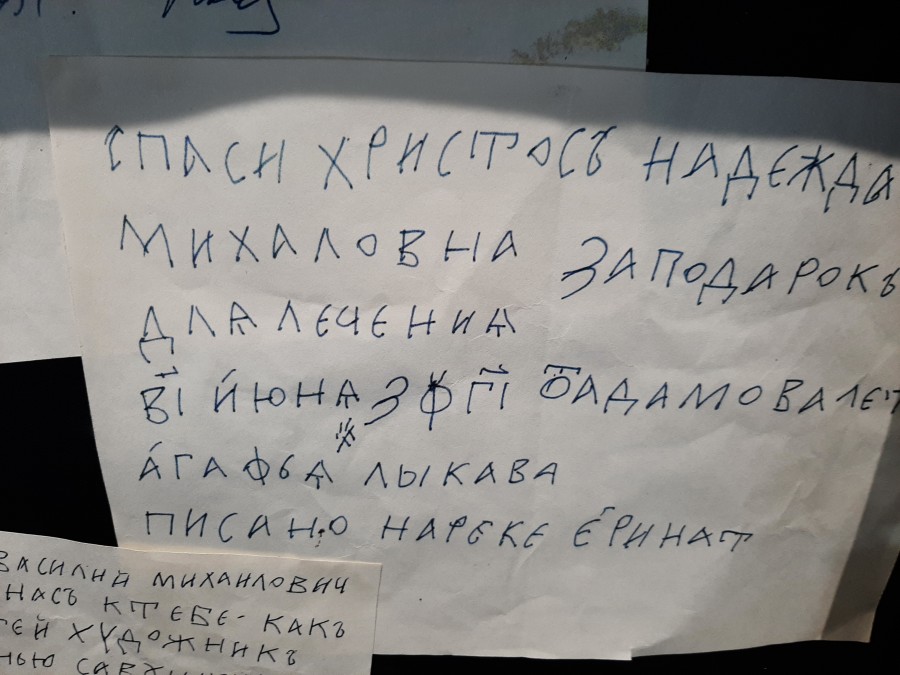 СПАСИ ХРИСТОСЪ НАДЕЖДА
МИХАЛОВНА ЗАПОДАРОКЪ
ДЛА ЛЕЧЕНИА
В҃І ЙЮНА ҂ЗФГ҃І Ѿ АДАМОВА ЛЕТ
А́ГАФЬА ЛЫКАВА
ПИСАНО НАРЕКЕ Е́РИНАТ
ВАСИЛИЙ МИХАИЛОВИЧ
НАСЪ К ТЕБЕ- КАКЪ
ТЕЙ ХУДОЖНИКЪ